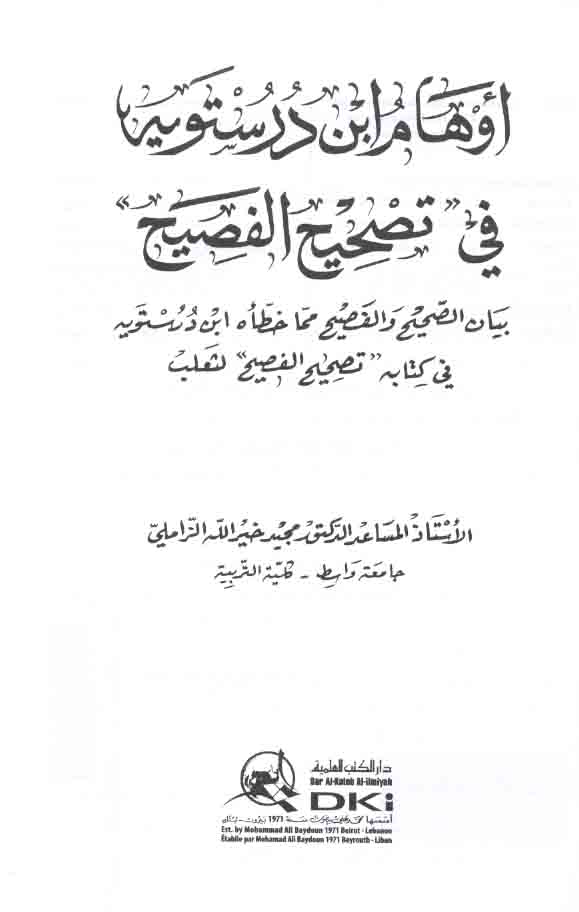 أوهام ابن درستويه
في "تصحيح الفصيح"
بيان الصحيح والفصيح مما خطأه ابن درستويه
في كتابه "تصحيح الفصيح" لثعلب
الأستاذ المساعد الدكتور مجيد خير الله الزاملي
جامعة واسط - كلية التربية
دار الكتب العلمية
Dar Al-Kotob Al-ilmiyah
DKi
أسسها محمد علي بيضون سنة 1971 بيروت - لبنان
Est. by Mohammad Ali Baydoun 1971 Beirut - Lebanon
Établie par Mohamad Ali Baydoun 1971 Beyrouth - Liban